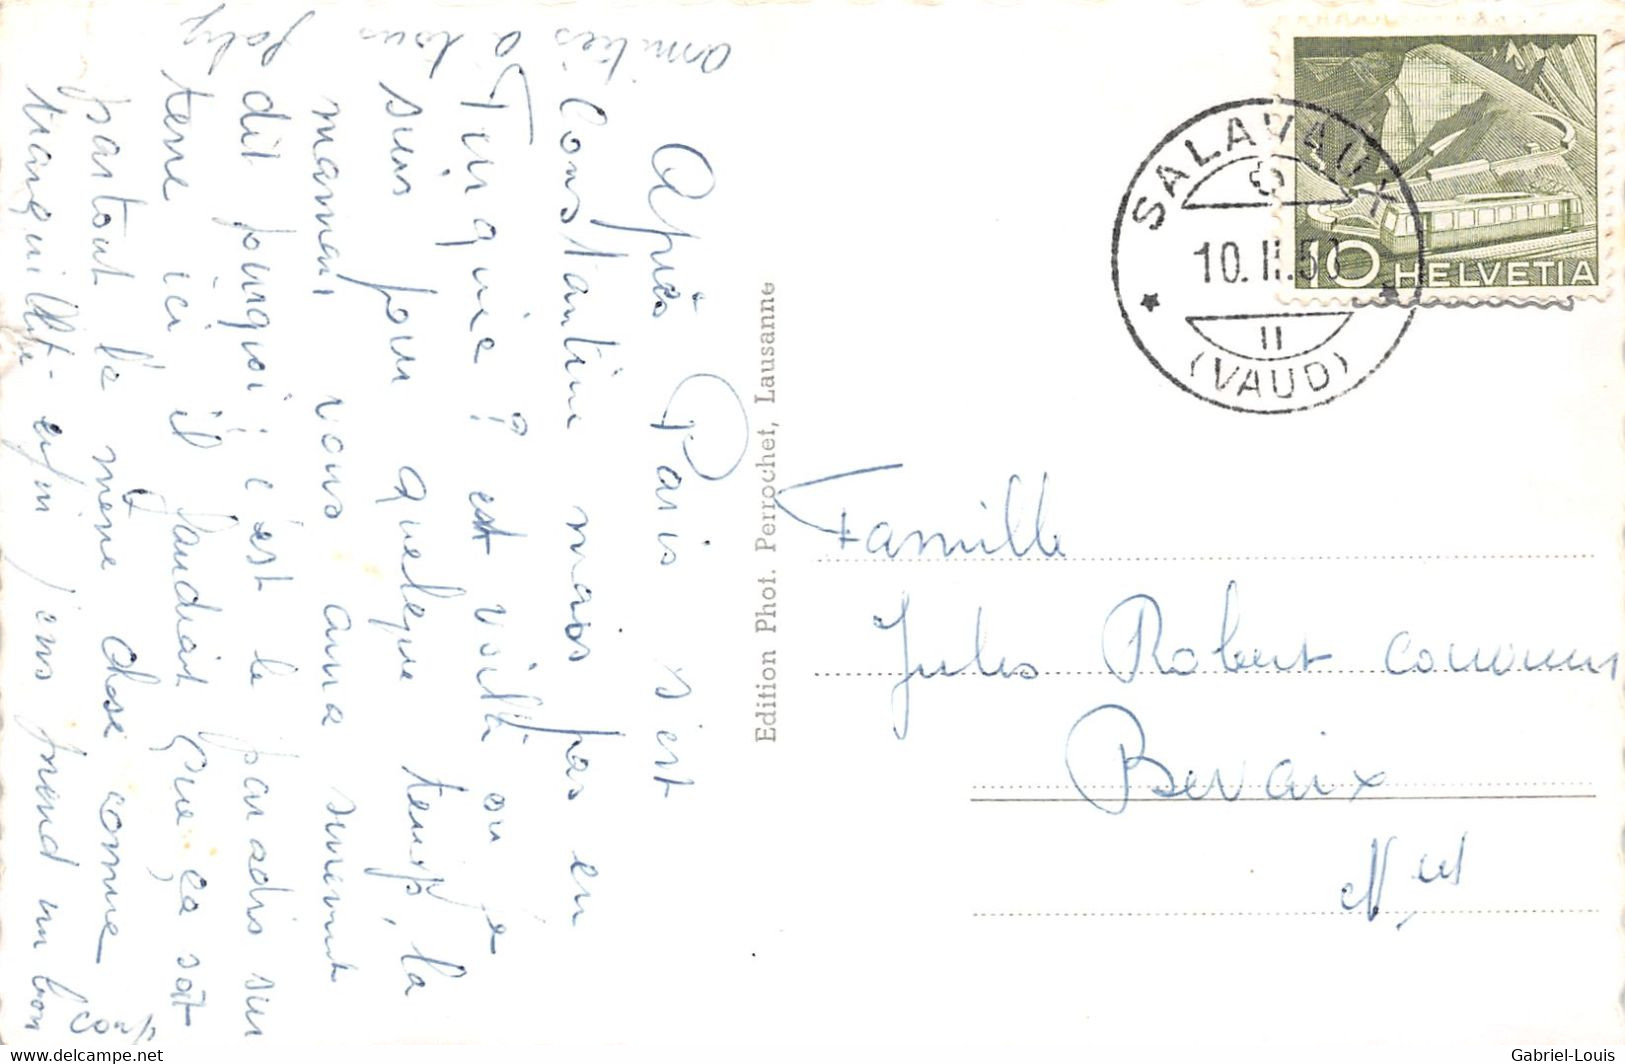 Après Paris s'est
Constantine mais pas en
Turquie! est voilà où je
suis pour quelque temps, la
maman vous aura surement
dit pourquoi; c'est le paradis sur
terre ici il faudrait que ça soit
partout la même chose comme
tranquillité enfin j'ens prend un bon
coup
amitiés
à tous
Edition Phot. Perrochet, Lausanne
SALAVAUX
10.II.50
II
(VAUD)
10 HELVETIA
Famille
Jules Robert
Bevaix
Ntel
delcampe.net
Gabriel-Louis